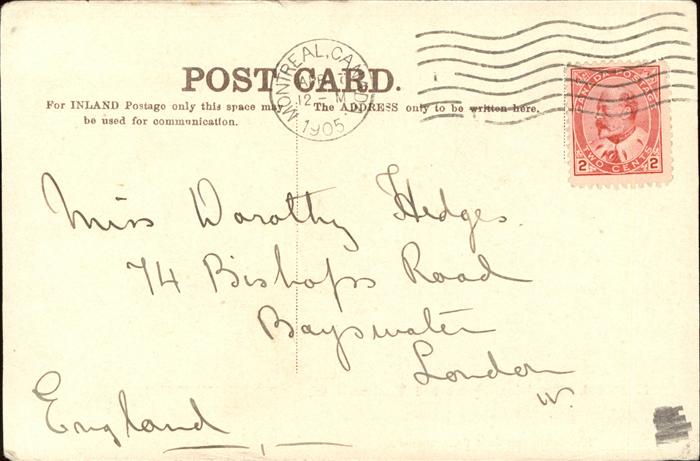 POST CARD.
MONTREAL, CANADA
APR 7
12 - M
1905
For INLAND Postage only this space may
be used for communication.
The ADDRESS only to be written here.
CANADA POSTAGE
2 2
TWO CENTS
Miss Dorothy Hedges.
74 Bishops Road
Bayswater
London
W.
England